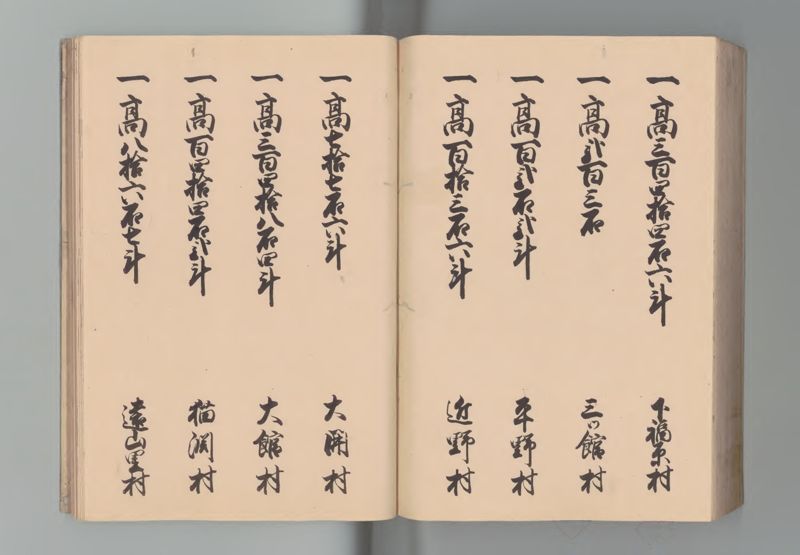 一高三百四拾四石六斗 下福原村
一高弐百三石 三ツ館村
一高百弐石弐斗 平野村
一高百拾三石六斗 近野村
一高七拾七石六斗 大関村
一高三百四拾八石四斗 大館村
一高百四拾四石弐斗 猫渕村
一高八拾六石七斗 遠山里村